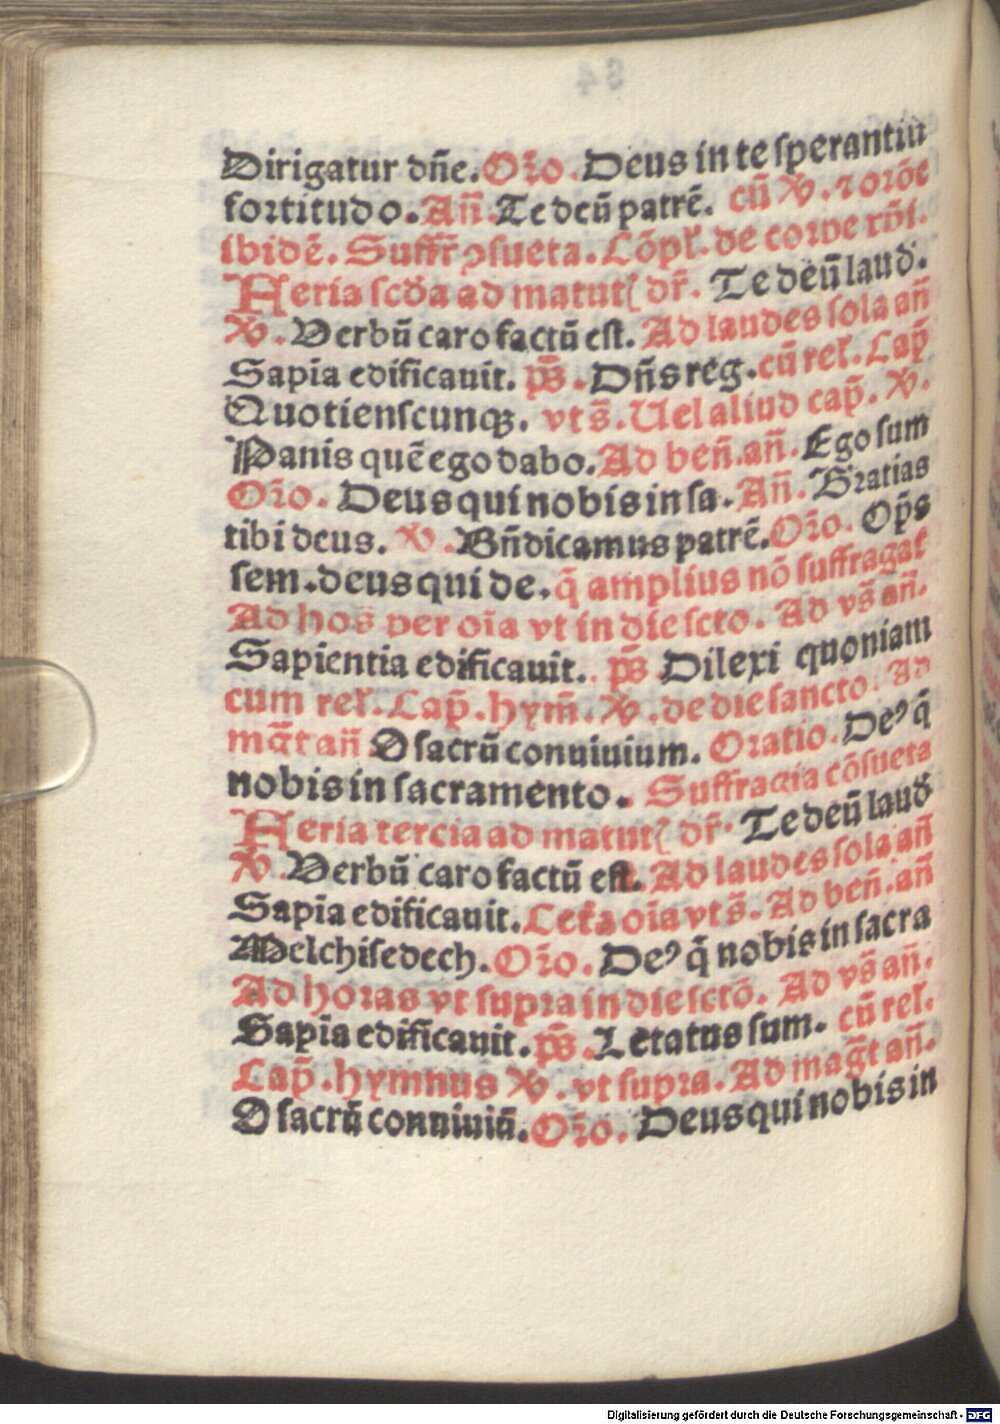 Dirigatur dñe. Oro̅. Deus in te sperantiū
fortitudo. Añ. Te deū patrē. cū ℣. ⁊ orōe
ibidē. Suffr̄ ꝯsueta. Cōpl'. de corde
Feria scďa ad matut' dr̄. Te deū laud.
℣. Verbū caro factū est. Ad laudes sola añ
Sapīa edificauit. ps̄. Dñs reg. cū rel'. Cap̄
Quotienscunqꝫ. vt s̄. Uel aliud cap̄. ℣.
Panis quē ego dabo. Ad beñ. añ. Ego sum
Oro̅. Deus qui nobis in sa. Añ. Gratias
tibi deus. ℣. Bñdicamus patrē. Oro̅. Op̄s
sem. deus qui de. q̄ amplius nō suffragat'
Ad hoš per oīa vt in die scto. Ad vs̄ añ.
Sapientia edificauit. ps̄ Dilexi quoniam
cum rel'. Cap̄. hym̄. ℣. de die sancto. Ad
mḡt añ O sacrū conuiuium. Oratio. Deꝰ q̄
nobis in sacramento. Suffragia cōsueta
Feria tercia ad matut' dr̄. Te deū laud
℣. Verbū caro factū est. Ad laudes sola añ
Sapīa edificauit. Cet'a oīa vt s̄. Ad beñ. añ
Melchisedech. Oro̅. Deꝰ q̄ nobis in sacra
Ad horas vt supra in die sctō. Ad vs̄ añ.
Sapīa edificauit. ps̄. Letatus sum. cū rel'.
Cap̄. hymnus ℣. vt supra. Ad maḡt añ.
O sacrū conuiuiū. Oro̅. Deus qui nobis in
Digitalisierung gefördert durch die Deutsche Forschungsgemeinschaft - DFG